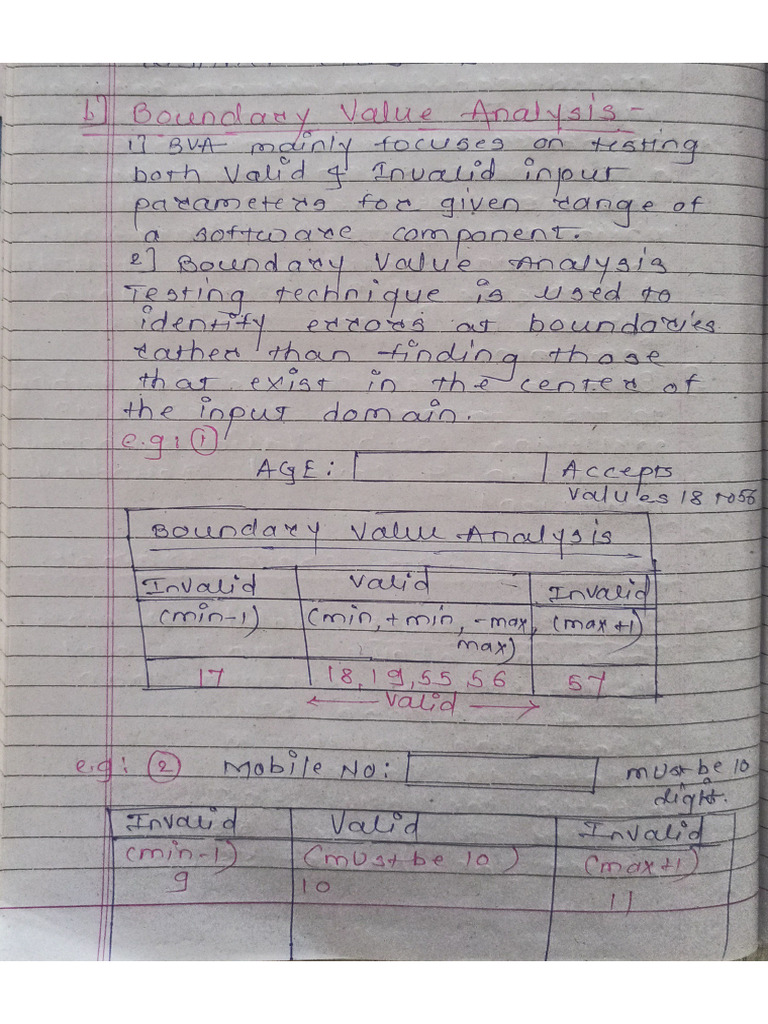 b] Boundary Value Analysis-
1] BVA mainly focuses on testing
both Valid & Invalid input
parameters for given range of
a software component.
2] Boundary Value Analysis
Testing technique is used to
identify errors at boundaries
rather than finding those
that exist in the center of
the input domain.
e.g: ①
AGE: Accepts
values 18 to 56
Boundary Value Analysis
Invalid Valid Invalid
(min-1) (min, +min, -max, (max+1)
max)
17 18, 19, 55 56 57
← Valid →
e.g: ② Mobile No: must be 10
digit.
Invalid Valid Invalid
(min-1) (must be 10) (max+1)
9 10 11